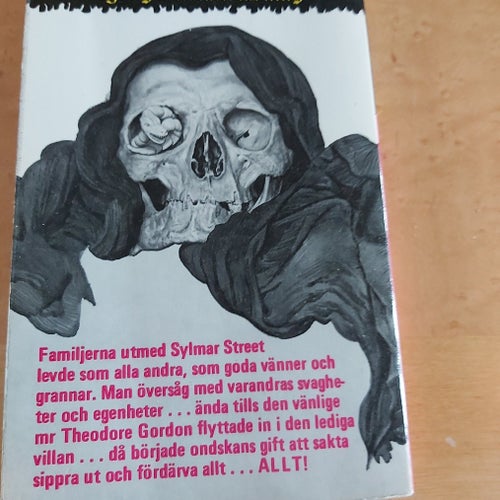 Familjerna utmed Sylmar Street
levde som alla andra, som goda vänner och
grannar. Man översåg med varandras svaghe-
ter och egenheter . . . ända tills den vänlige
mr Theodore Gordon flyttade in i den lediga
villan . . . då började ondskans gift att sakta
sippra ut och fördärva allt . . . ALLT!